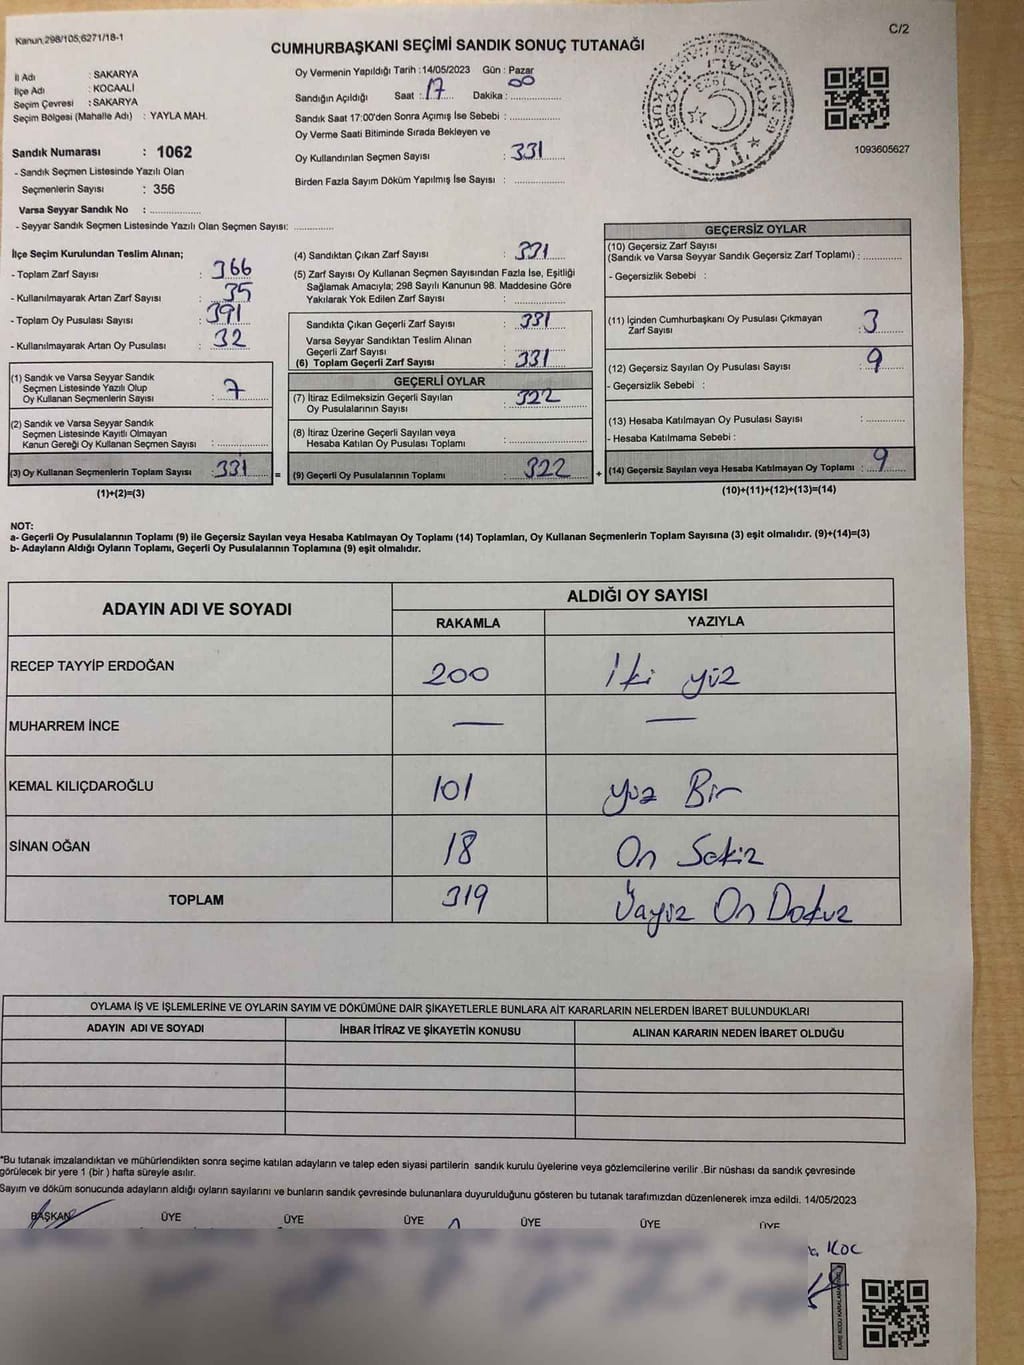 Kanun,298/105,6271/18-1
C/2
CUMHURBAŞKANI SEÇİMİ SANDIK SONUÇ TUTANAĞI
İl Adı : SAKARYA
İlçe Adı : KOCAALİ
Seçim Çevresi : SAKARYA
Seçim Bölgesi (Mahalle Adı) : YAYLA MAH.
Sandık Numarası : 1062
- Sandık Seçmen Listesinde Yazılı Olan
Seçmenlerin Sayısı : 356
Varsa Seyyar Sandık No :
- Seyyar Sandık Seçmen Listesinde Yazılı Olan Seçmen Sayısı:
Oy Vermenin Yapıldığı Tarih :14/05/2023 Gün : Pazar
Sandığın Açıldığı Saat : 17 Dakika : 00
Sandık Saat 17:00'den Sonra Açımış İse Sebebi :
Oy Verme Saati Bitiminde Sırada Bekleyen ve
Oy Kullandırılan Seçmen Sayısı : 331
Birden Fazla Sayım Döküm Yapılmış İse Sayısı :
T.C.
1093605627
İlçe Seçim Kurulundan Teslim Alınan;
- Toplam Zarf Sayısı : 366
- Kullanılmayarak Artan Zarf Sayısı : 35
- Toplam Oy Pusulası Sayısı : 391
- Kullanılmayarak Artan Oy Pusulası : 32
(1) Sandık ve Varsa Seyyar Sandık
Seçmen Listesinde Yazılı Olup
Oy Kullanan Seçmenlerin Sayısı : 7
(2) Sandık ve Varsa Seyyar Sandık
Seçmen Listesinde Kayıtlı Olmayan
Kanun Gereği Oy Kullanan Seçmen Sayısı :
(3) Oy Kullanan Seçmenlerin Toplam Sayısı : 331 =
(1)+(2)=(3)
(4) Sandıktan Çıkan Zarf Sayısı : 331
(5) Zarf Sayısı Oy Kullanan Seçmen Sayısından Fazla İse, Eşitliği
Sağlamak Amacıyla; 298 Sayılı Kanunun 98. Maddesine Göre
Yakılarak Yok Edilen Zarf Sayısı :
Sandıkta Çıkan Geçerli Zarf Sayısı : 331
Varsa Seyyar Sandıktan Teslim Alınan
Geçerli Zarf Sayısı :
(6) Toplam Geçerli Zarf Sayısı : 331
GEÇERLİ OYLAR
(7) İtiraz Edilmeksizin Geçerli Sayılan
Oy Pusulalarının Sayısı : 322
(8) İtiraz Üzerine Geçerli Sayılan veya
Hesaba Katılan Oy Pusulası Toplamı :
(9) Geçerli Oy Pusulalarının Toplamı : 322 +
GEÇERSİZ OYLAR
(10) Geçersiz Zarf Sayısı
(Sandık ve Varsa Seyyar Sandık Geçersiz Zarf Toplamı) :
- Geçersizlik Sebebi :
(11) İçinden Cumhurbaşkanı Oy Pusulası Çıkmayan
Zarf Sayısı : 3
(12) Geçersiz Sayılan Oy Pusulası Sayısı : 9
- Geçersizlik Sebebi :
(13) Hesaba Katılmayan Oy Pusulası Sayısı :
- Hesaba Katılmama Sebebi :
(14) Geçersiz Sayılan veya Hesaba Katılmayan Oy Toplamı : 9
(10)+(11)+(12)+(13)=(14)
NOT:
a- Geçerli Oy Pusulalarının Toplamı (9) ile Geçersiz Sayılan veya Hesaba Katılmayan Oy Toplamı (14) Toplamları, Oy Kullanan Seçmenlerin Toplam Sayısına (3) eşit olmalıdır. (9)+(14)=(3)
b- Adayların Aldığı Oyların Toplamı, Geçerli Oy Pusulalarının Toplamına (9) eşit olmalıdır.
ADAYIN ADI VE SOYADI
ALDIĞI OY SAYISI
RAKAMLA YAZIYLA
RECEP TAYYİP ERDOĞAN 200 İki yüz
MUHARREM İNCE — —
KEMAL KILIÇDAROĞLU 101 yüz Bir
SİNAN OĞAN 18 On Sekiz
TOPLAM 319 Üçyüz On Dokuz
OYLAMA İŞ VE İŞLEMLERİNE VE OYLARIN SAYIM VE DÖKÜMÜNE DAİR ŞİKAYETLERLE BUNLARA AİT KARARLARIN NELERDEN İBARET BULUNDUKLARI
ADAYIN ADI VE SOYADI İHBAR İTİRAZ VE ŞİKAYETİN KONUSU ALINAN KARARIN NEDEN İBARET OLDUĞU
*Bu tutanak imzalandıktan ve mühürlendikten sonra seçime katılan adayların ve talep eden siyasi partilerin sandık kurulu üyelerine veya gözlemcilerine verilir .Bir nüshası da sandık çevresinde
görülecek bir yere 1 (bir ) hafta süreyle asılır.
Sayım ve döküm sonucunda adayların aldığı oyların sayılarını ve bunların sandık çevresinde bulunanlara duyurulduğunu gösteren bu tutanak tarafımızdan düzenlenerek imza edildi. 14/05/2023
BAŞKAN ÜYE ÜYE ÜYE ÜYE ÜYE ÜYE
Koc